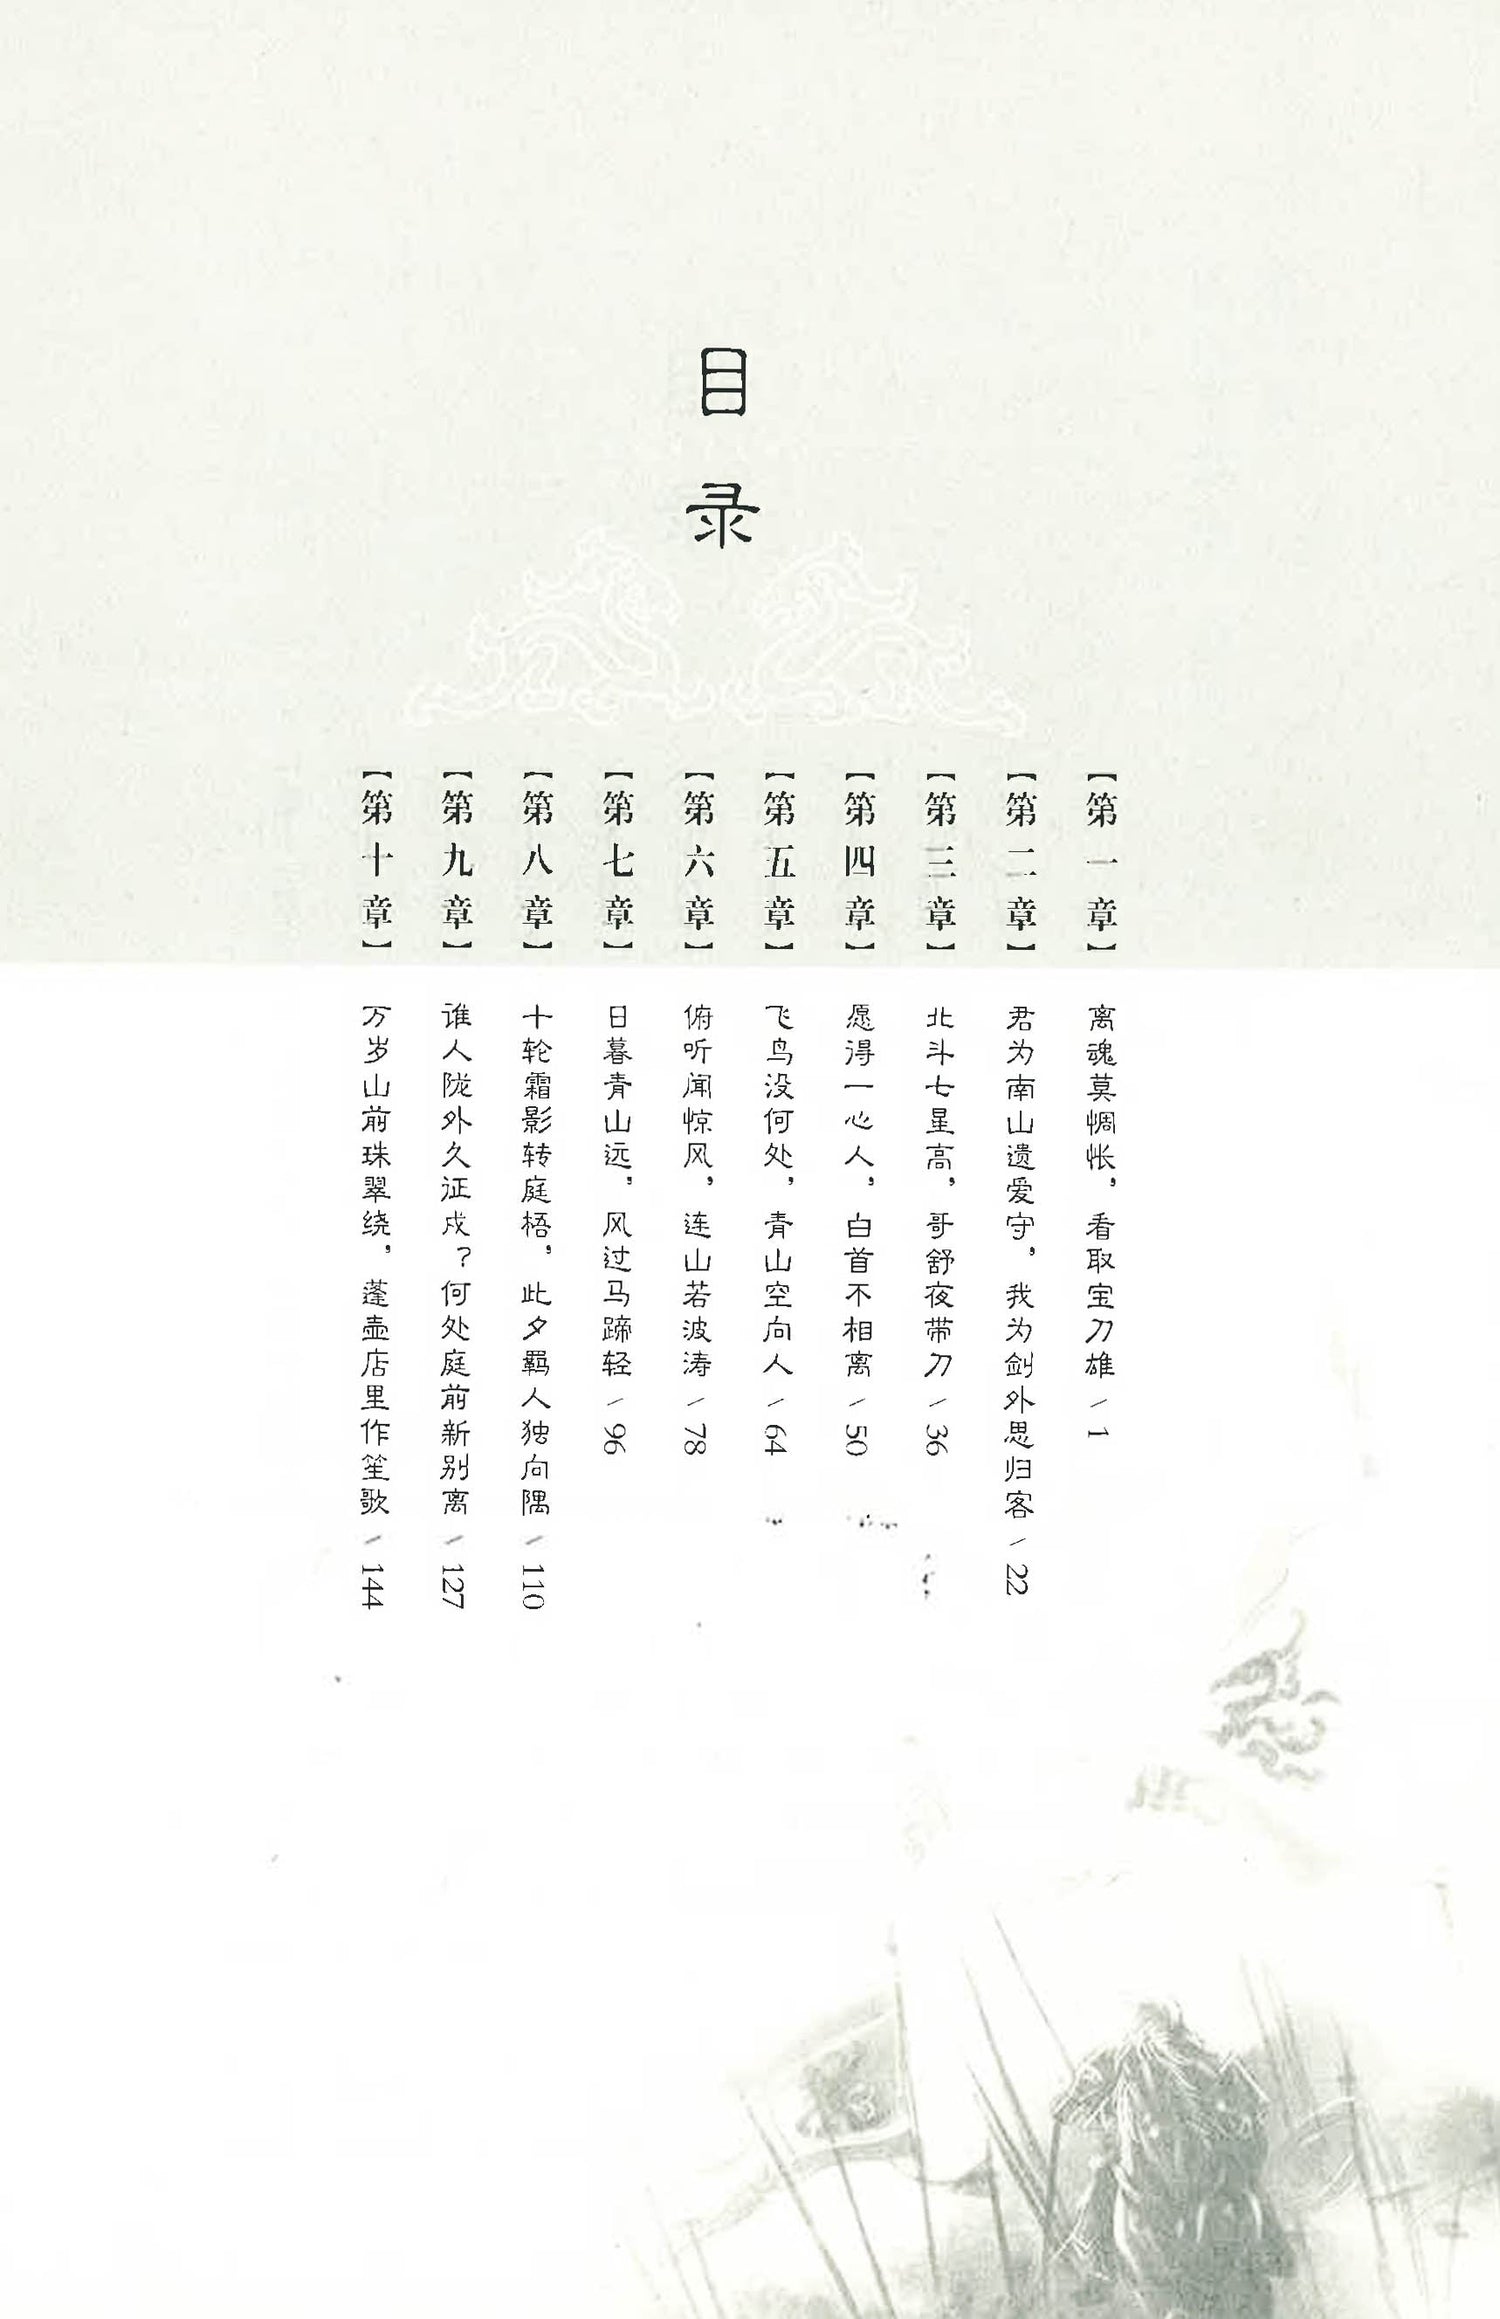 目录
【第一章】 离魂莫惆怅，看取宝刀雄 / 1
【第二章】 君为南山遗爱守，我为剑外思归客 / 22
【第三章】 北斗七星高，哥舒夜带刀 / 36
【第四章】 愿得一心人，白首不相离 / 50
【第五章】 飞鸟没何处，青山空向人 / 64
【第六章】 俯听闻惊风，连山若波涛 / 78
【第七章】 日暮青山远，风过马蹄轻 / 96
【第八章】 十轮霜影转庭梧，此夕羁人独向隅 / 110
【第九章】 谁人陇外久征戍？何处庭前新别离 / 127
【第十章】 万岁山前珠翠绕，蓬壶店里作笙歌 / 144